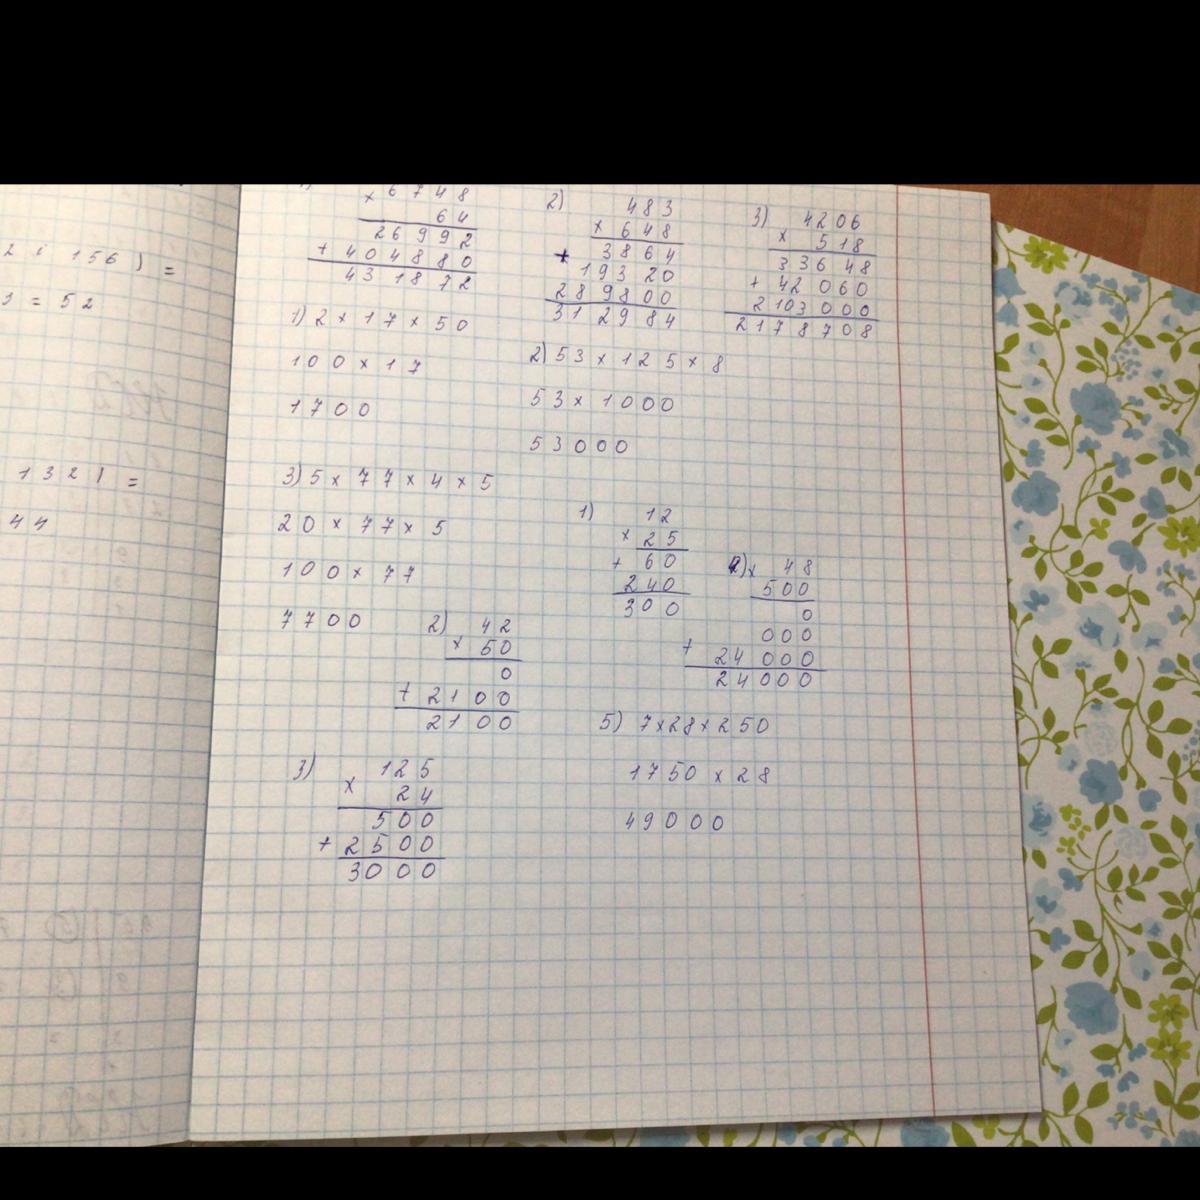 2 : 156) =
3 = 52
1321 =
44
1)
× 6748
64
26992
+ 404880
431872
2)
483
× 648
+ 3864
19320
289800
312984
3) 4206
× 518
33648
+ 42060
2103000
2178708
1) 2 × 17 × 50
100 × 17
1700
2) 53 × 125 × 8
53 × 1000
53000
3) 5 × 77 × 4 × 5
20 × 77 × 5
100 × 77
7700
1) 12
× 25
+ 60
240
300
2) 42
× 50
0
+ 2100
2100
3) 125
× 24
500
+ 2500
3000
4) × 48
500
0
000
+ 24000
24000
5) 7×28×250
1750 × 28
49000